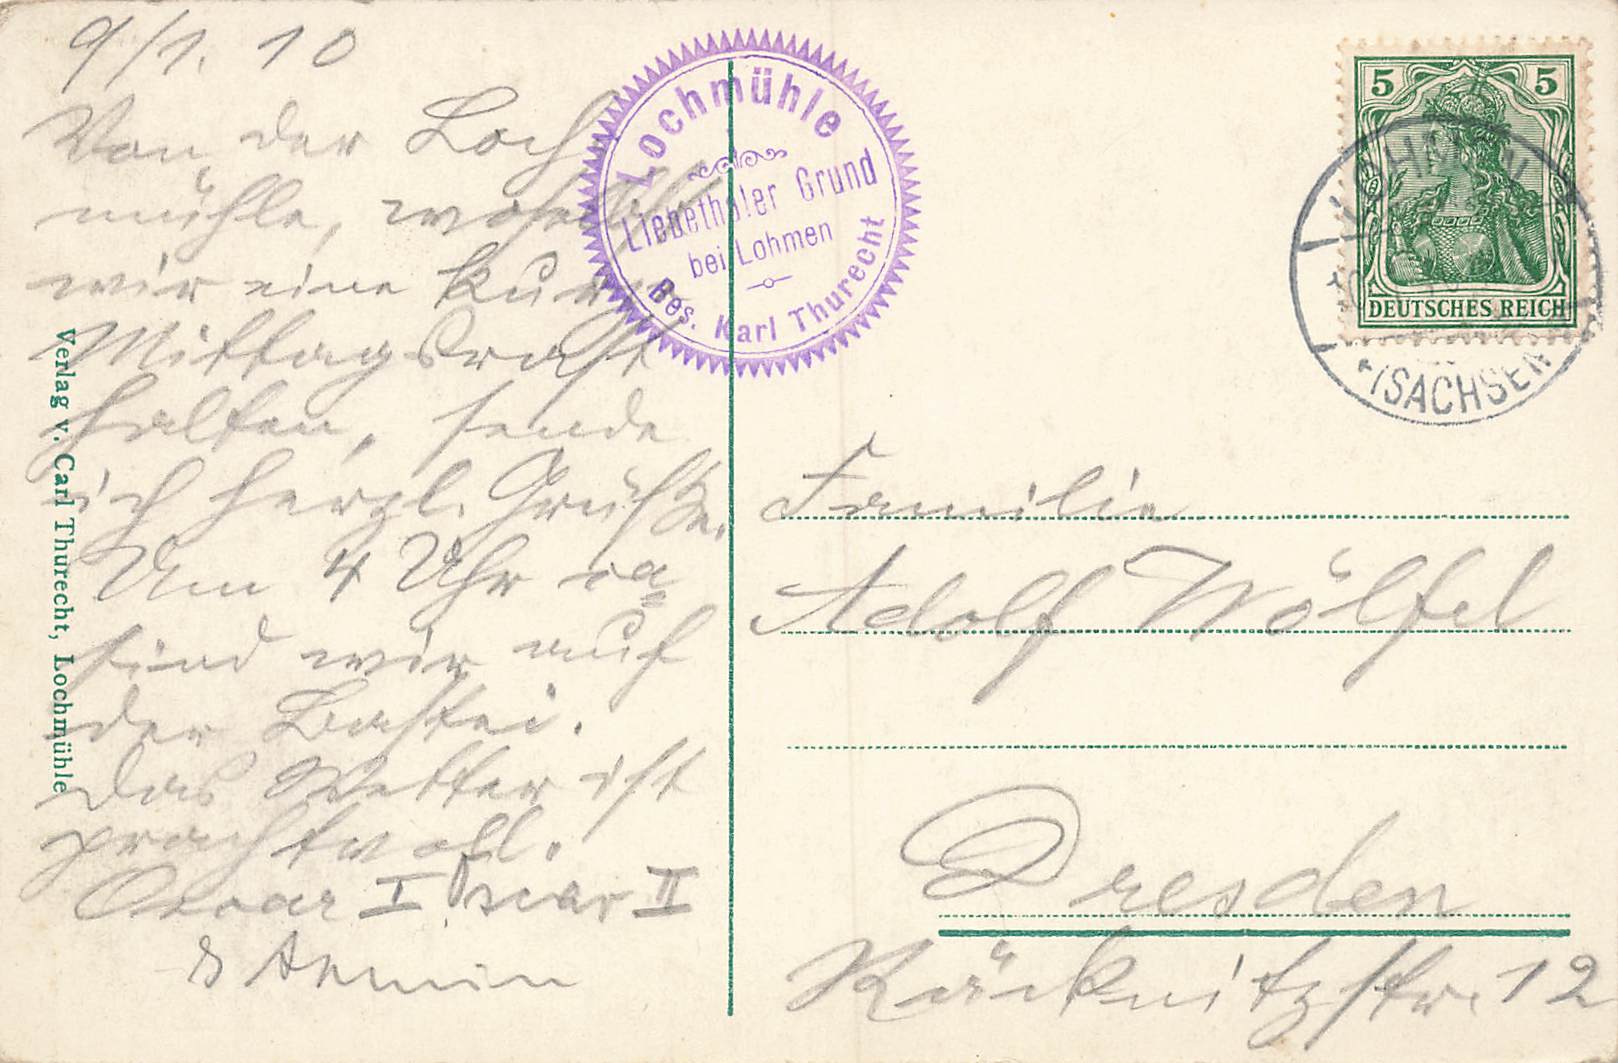 9/1. 10
Von der Loch
mühle, woselbst
wir eine kurze
Mittagsrast
halten, sende
ich herzl. Grüße.
Um 4 Uhr ca
sind wir auf
der Bastei.
Das Wetter ist
prachtvoll.
Oscar I Oscar II
& Armin
Verlag v. Carl Thurecht, Lochmühle
Lochmühle
Liebethaler Grund
bei Lohmen
Bes. Karl Thurecht
5 5
DEUTSCHES REICH
LOHMEN
(SACHSEN
Familie
Adolf Wölfel
Dresden
Räcknitzstr. 12